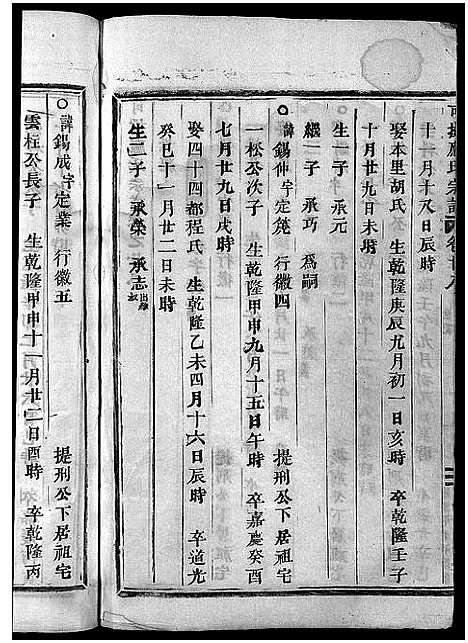 宗譜 卷廿八
十一月十八日辰時
娶本里胡氏 生乾隆庚辰九月初一日亥時 卒乾隆壬子
十月廿九日未時
生一子 承元
繼一子 承巧 為嗣
○諱錫仲字定㡬 行徽四 提刑公下居祖宅
一松公次子 生乾隆甲申九月十五日午時 卒嘉慶癸酉
七月廿九日戌時
娶四十四都程氏 生乾隆乙未四月十六日辰時 卒道光
癸巳十一月廿二日未時
生二子 承榮 承志出繼
○諱錫成字定業 行徽五 提刑公下居祖宅
雲柱公長子 生乾隆甲申十一月廿二日酉時 卒乾隆丙